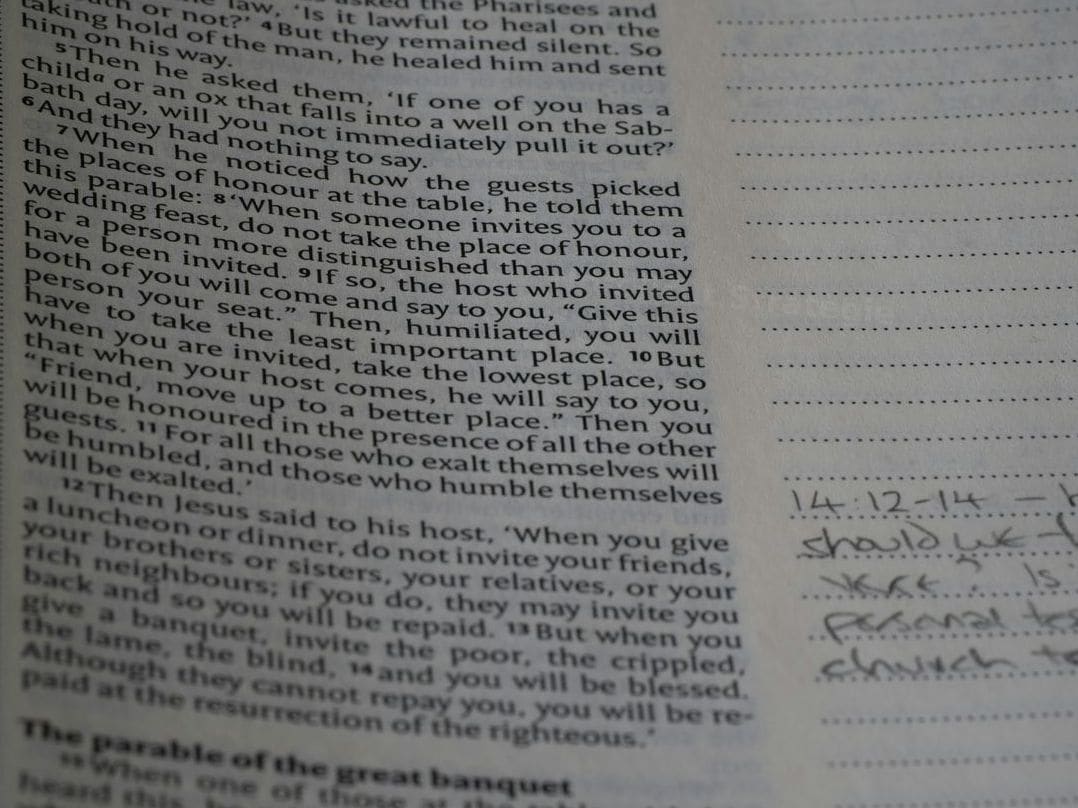 asked the Pharisees and
law, ‘Is it lawful to heal on the
or not?’ 4 But they remained silent. So
taking hold of the man, he healed him and sent
him on his way.
5 Then he asked them, ‘If one of you has a
childa or an ox that falls into a well on the Sab-
bath day, will you not immediately pull it out?’
6 And they had nothing to say.
7 When he noticed how the guests picked
the places of honour at the table, he told them
this parable: 8 ‘When someone invites you to a
wedding feast, do not take the place of honour,
for a person more distinguished than you may
have been invited. 9 If so, the host who invited
both of you will come and say to you, “Give this
person your seat.” Then, humiliated, you will
have to take the least important place. 10 But
when you are invited, take the lowest place, so
that when your host comes, he will say to you,
“Friend, move up to a better place.” Then you
will be honoured in the presence of all the other
guests. 11 For all those who exalt themselves will
be humbled, and those who humble themselves
will be exalted.’
12 Then Jesus said to his host, ‘When you give
a luncheon or dinner, do not invite your friends,
your brothers or sisters, your relatives, or your
rich neighbours; if you do, they may invite you
back and so you will be repaid. 13 But when you
give a banquet, invite the poor, the crippled,
the lame, the blind, 14 and you will be blessed.
Although they cannot repay you, you will be re-
paid at the resurrection of the righteous.’
The parable of the great banquet
15 When one of those at the
heard this, he
14:12-14 –
should we
Is
personal
church